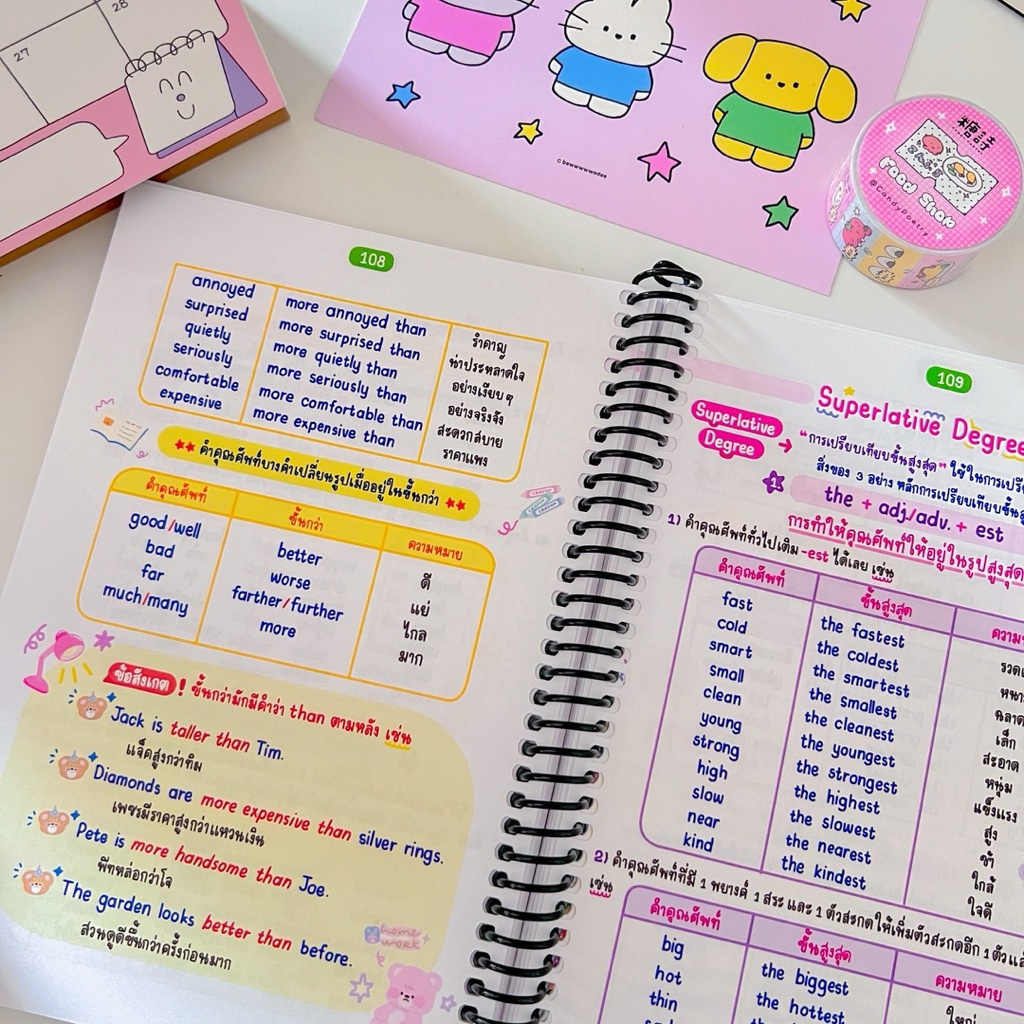 27
28
© bewwwwwodee
糖詩
Food Shop
@CandyPoetry
108
annoyed more annoyed than รำคาญ
surprised more surprised than น่าประหลาดใจ
quietly more quietly than อย่างเงียบๆ
seriously more seriously than อย่างจริงจัง
comfortable more comfortable than สะดวกสบาย
expensive more expensive than ราคาแพง
คำคุณศัพท์บางคำเปลี่ยนรูปเมื่ออยู่ในขั้นกว่า
คำคุณศัพท์ ขั้นกว่า ความหมาย
good/well better ดี
bad worse แย่
far farther/further ไกล
much/many more มาก
ข้อสังเกต ! ขั้นกว่ามักมีคำว่า than ตามหลัง เช่น
Jack is taller than Tim.
แจ็คสูงกว่าทิม
Diamonds are more expensive than silver rings.
เพชรมีราคาสูงกว่าแหวนเงิน
Pete is more handsome than Joe.
พีทหล่อกว่าโจ
The garden looks better than before.
สวนดูดีขึ้นกว่าครั้งก่อนมาก
home work
109
Superlative Degree
Superlative Degree
"การเปรียบเทียบขั้นสูงสุด" ใช้ในการ
สิ่งของ 3 อย่าง หลักการเปรียบเทียบขั้น
the + adj/adv. + est
การทำให้คุณศัพท์ให้อยู่ในรูปสูงสุด
1) คำคุณศัพท์ทั่วไปเติม -est ได้เลย เช่น
คำคุณศัพท์ ขั้นสูงสุด
fast the fastest
cold the coldest
smart the smartest ฉลาด
small the smallest เล็ก
clean the cleanest สะอาด
young the youngest หนุ่ม
strong the strongest แข็งแรง
high the highest สูง
slow the slowest ช้า
near the nearest ใกล้
kind the kindest ใจดี
2) คำคุณศัพท์ที่มี 1 พยางค์ 1 สระ และ 1 ตัวสะกดให้เพิ่มตัวสะกดอีก 1 ตัว
เช่น
คำคุณศัพท์ ขั้นสูงสุด ความหมาย
big the biggest ใหญ่
hot the hottest
thin